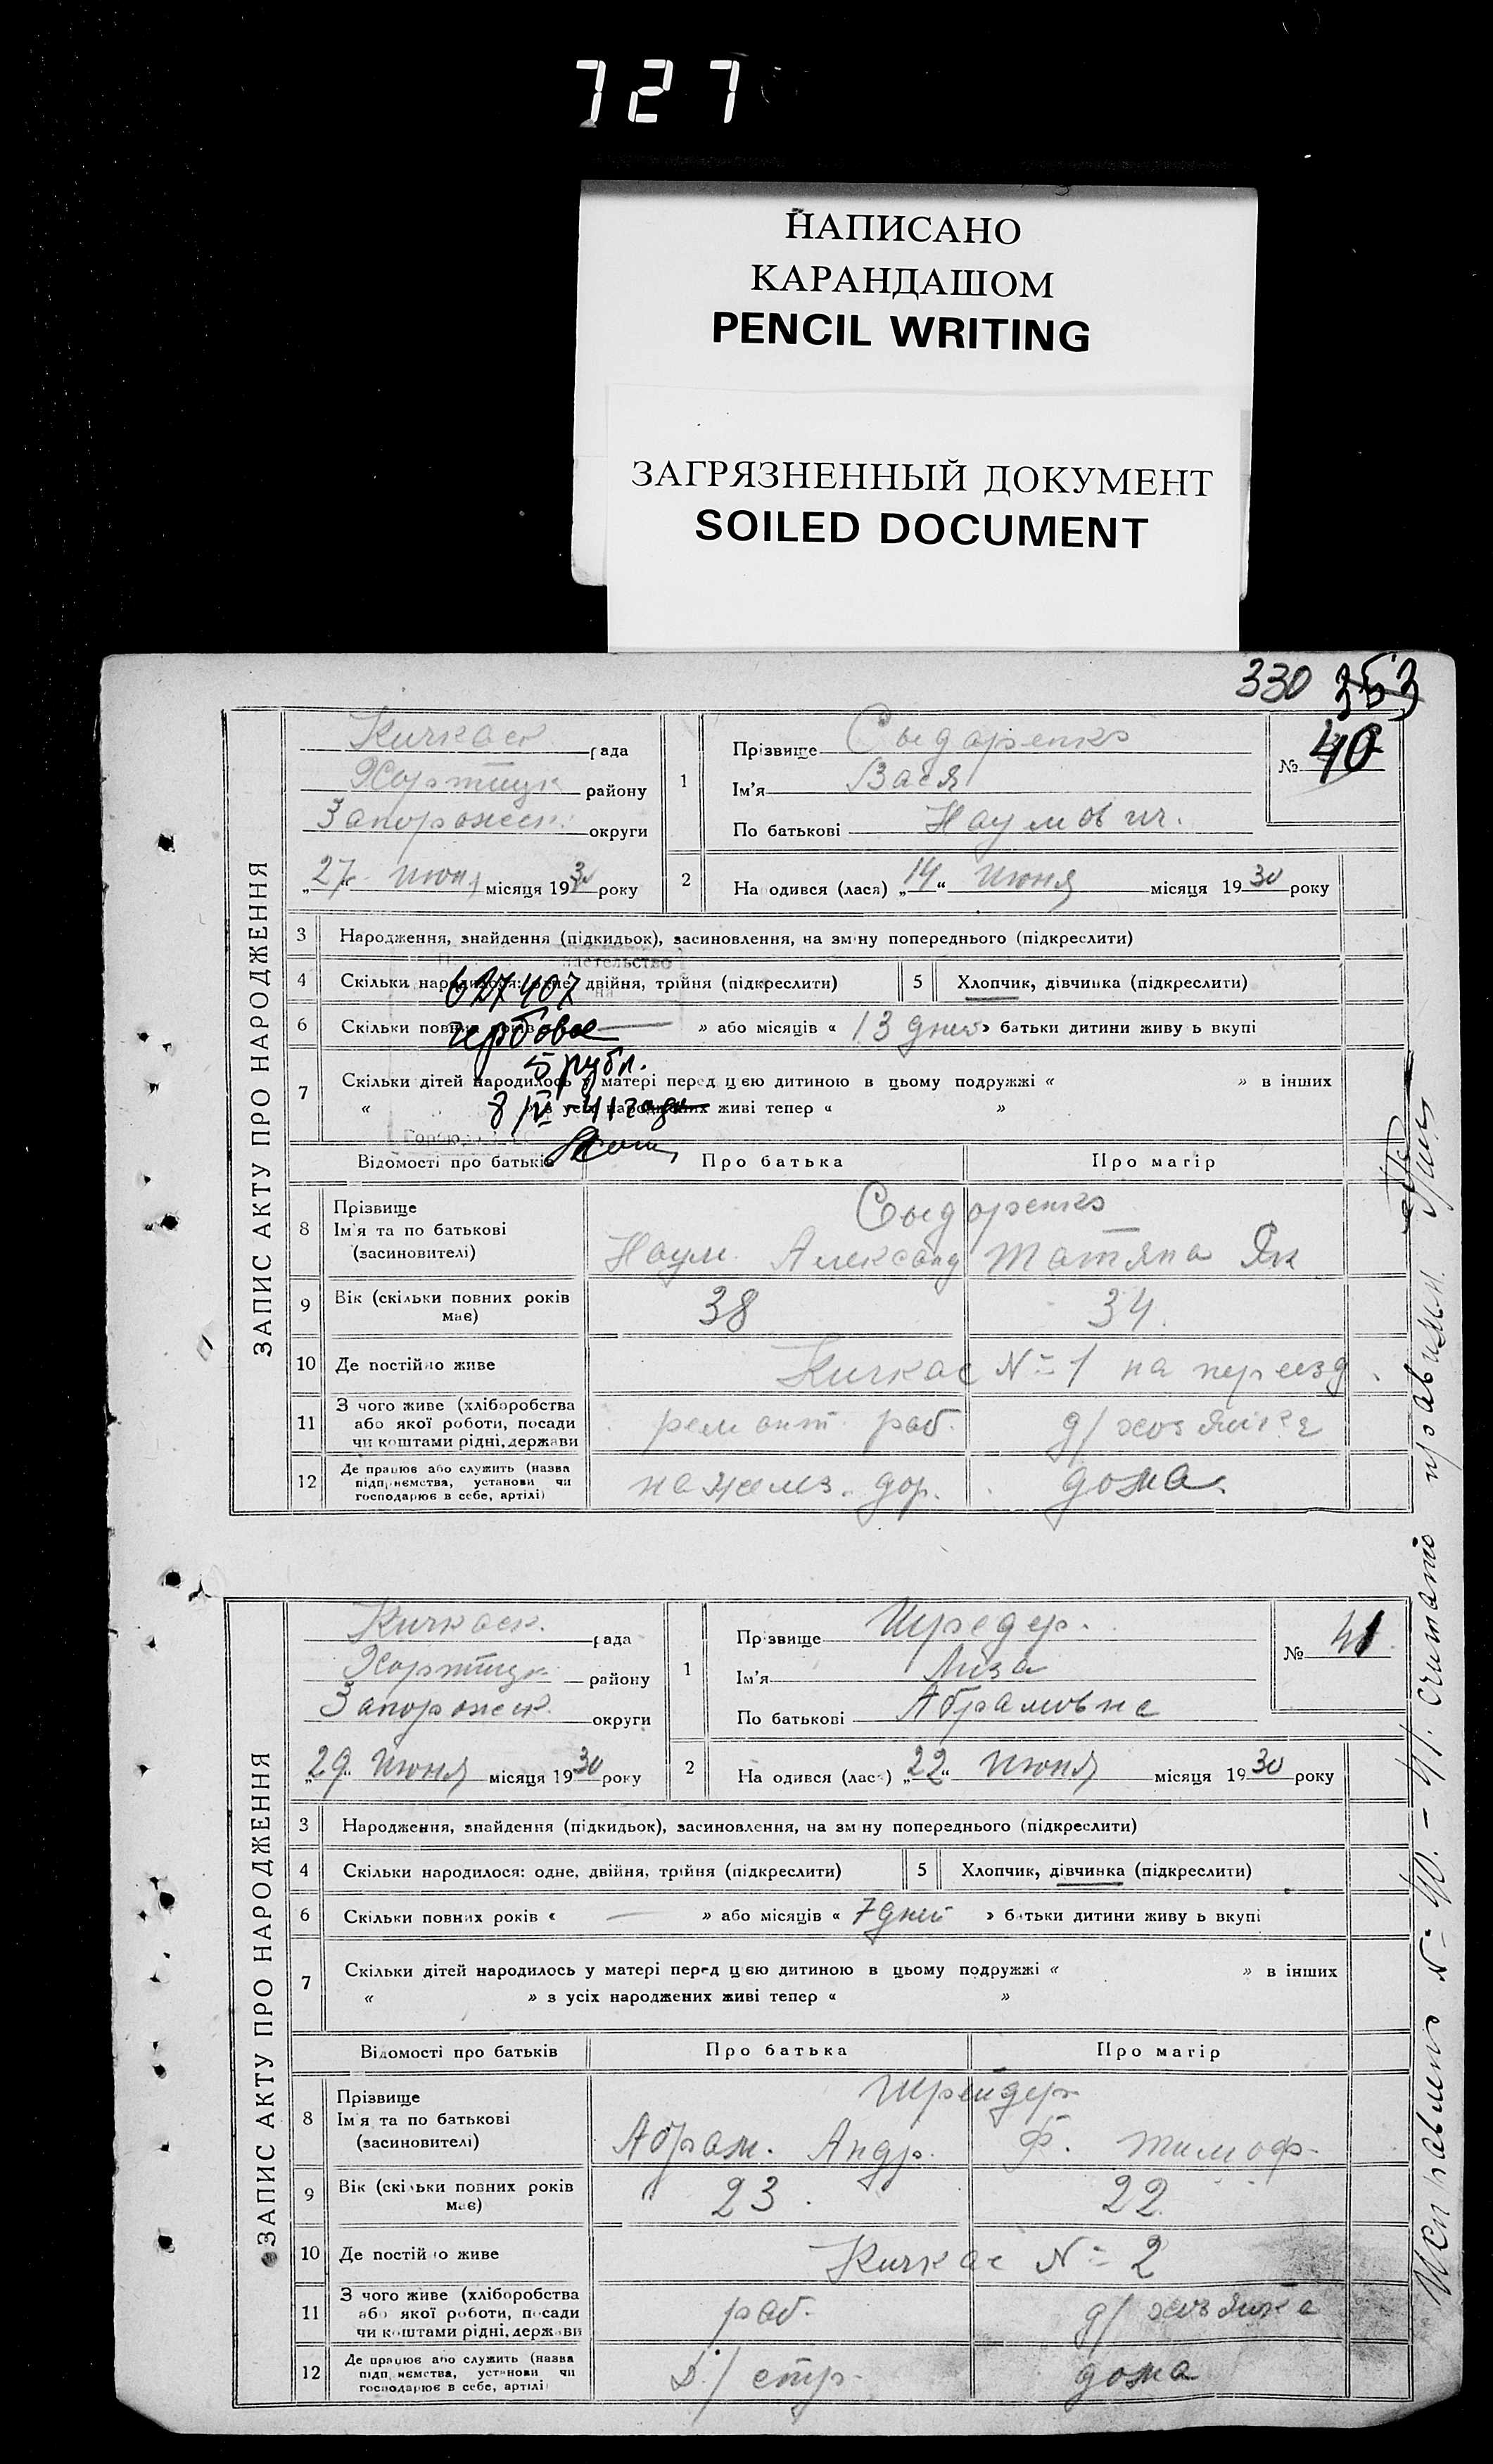 727
НАПИСАНО
КАРАНДАШОМ
PENCIL WRITING
ЗАГРЯЗНЕННЫЙ ДОКУМЕНТ
SOILED DOCUMENT
330 353
ЗАПИС АКТУ ПРО НАРОДЖЕННЯ
Кичкаск рада
Хортицк району
Запорожск. округи
„27“ июня місяця 1930 року
1 Прізвище Сыдоренко
Ім'я Вася
По батькові Наумович.
№ 40
2 На одився (лася) „14“ июня місяця 1930 року
3 Народження, знайдення (підкидьок), засиновлення, на зміну попереднього (підкреслити)
4 Скільки народилося: одне, двійня, трійня (підкреслити) 5 Хлопчик, дівчинка (підкреслити)
627407
6 Скільки повних років « — » або місяців « 13 дней » батьки дитини живу ь вкупі
гербовое
5 рубл.
7 Скільки дітей народилось у матері перед цією дитиною в цьому подружжі « » в інших
« » з усіх народжених живі тепер « »
8/IV 41 года
Відомості про батьків Про батька Про матір
8 Прізвище
Ім'я та по батькові
(засиновителі)
Сыдоренко
Наум. Александ Татяна Як
9 Вік (скільки повних років
має)
38 34.
10 Де постійно живе Кичкас № 1 на переезд.
11 З чого живе (хліборобства
або якої роботи, посади
чи коштами рідні, держави
ремонт. раб. д/хозяйка
12 Де працює або служить (назва
підприємства, установи чи
господарює в себе, артілі)
на желез. дор. дома.
ЗАПИС АКТУ ПРО НАРОДЖЕННЯ
Кичкаск. рада
Хортицк району
Запорожск. округи
„29“ июня місяця 1930 року
1 Пр звище Шредер.
Ім'я Лиза
По батькові Абрамовна
№ 41
2 На одився (лася) „22“ июня місяця 1930 року
3 Народження, знайдення (підкидьок), засиновлення, на зм ну попереднього (підкреслити)
4 Скільки народилося: одне, двійня, трійня (підкреслити) 5 Хлопчик, дівчинка (підкреслити)
6 Скільки повних років « — » або місяців « 7 дней » батьки дитини живу ь вкупі
7 Скільки дітей народилось у матері перед цією дитиною в цьому подружжі « » в інших
« » з усіх народжених живі тепер « »
Відомості про батьків Про батька Про матір
8 Прізвище
Ім'я та по батькові
(засиновителі)
Шрейдер
Абрам. Андр. Ф. Тимоф.
9 Вік (скільки повних років
має)
23. 22.
10 Де постійно живе Кичкас № 2
11 З чого живе (хліборобства
або якої роботи, посади
чи коштами рідні, держави
раб. д/хозяйка
12 Де працює або служить (назва
підприємства, установи чи
господарює в себе, артілі)
Д/стр. дома
Исправлено № 40. – 41. считать правильн.